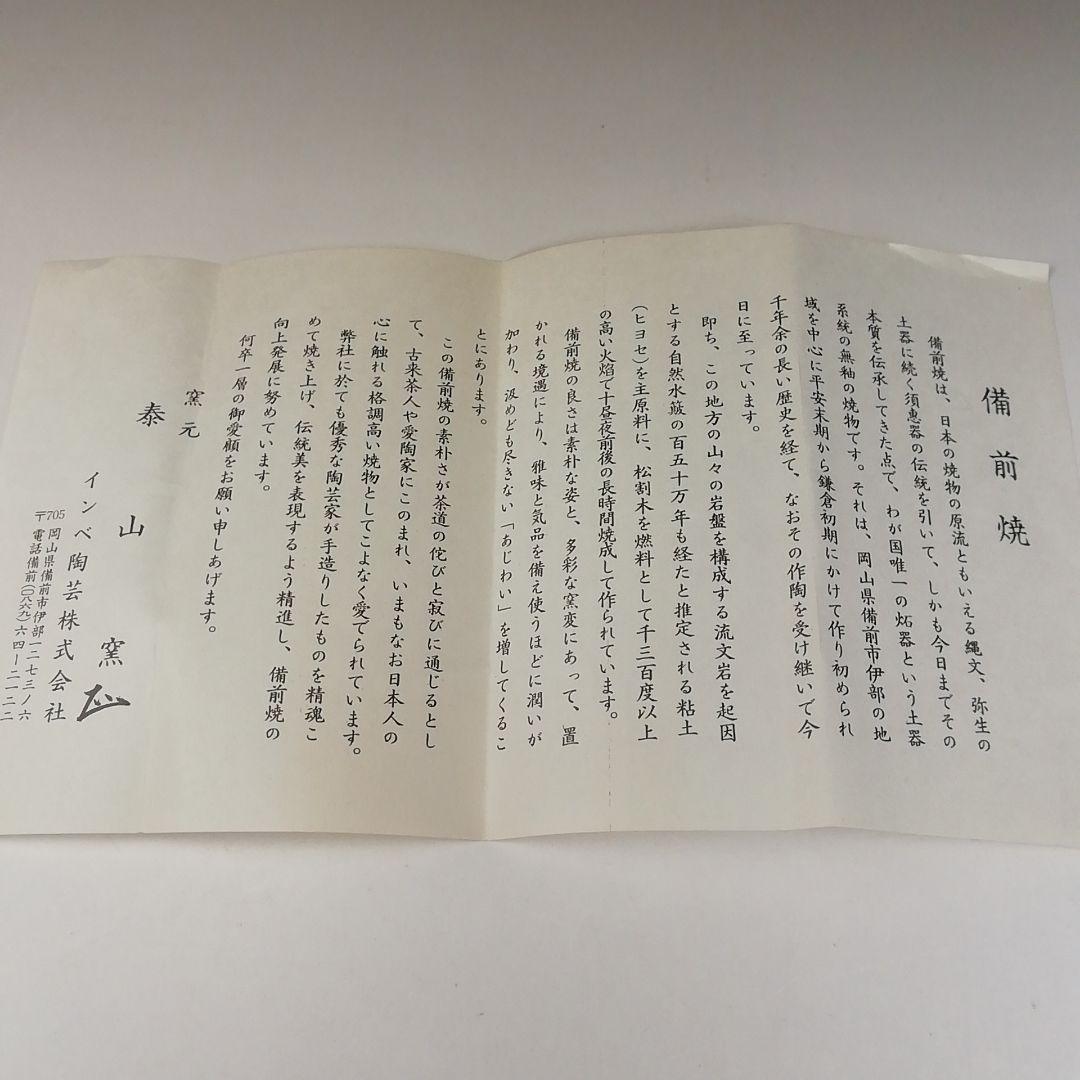 備前焼
備前焼は、日本の焼物の原流ともいえる縄文、弥生の
土器に続く須恵器の伝統を引いて、しかも今日までその
本質を伝承してきた点で、わが国唯一の炻器という土器
系統の無釉の焼物です。それは、岡山県備前市伊部の地
域を中心に平安末期から鎌倉初期にかけて作り初められ
千年余の長い歴史を経て、なおその作陶を受け継いで今
日に至っています。
即ち、この地方の山々の岩盤を構成する流文岩を起因
とする自然水簸の百五十万年も経たと推定される粘土
(ヒヨセ)を主原料に、松割木を燃料として千三百度以上
の高い火焰で十昼夜前後の長時間焼成して作られています。
備前焼の良さは素朴な姿と、多彩な窯変にあって、置
かれる境遇により、雅味と気品を備え使うほどに潤いが
加わり、汲めども尽きない「あじわい」を増してくるこ
とにあります。
この備前焼の素朴さが茶道の侘びと寂びに通じるとし
て、古来茶人や愛陶家にこのまれ、いまもなお日本人の
心に触れる格調高い焼物としてこよなく愛でられています。
弊社に於ても優秀な陶芸家が手造りしたものを精魂こ
めて焼き上げ、伝統美を表現するよう精進し、備前焼の
向上発展に努めています。
何卒一層の御愛顧をお願い申しあげます。
窯元
泰山窯
インベ陶芸株式会社
〒705 岡山県備前市伊部一二七三ノ六
電話備前(〇八六九)六四ー二一二二